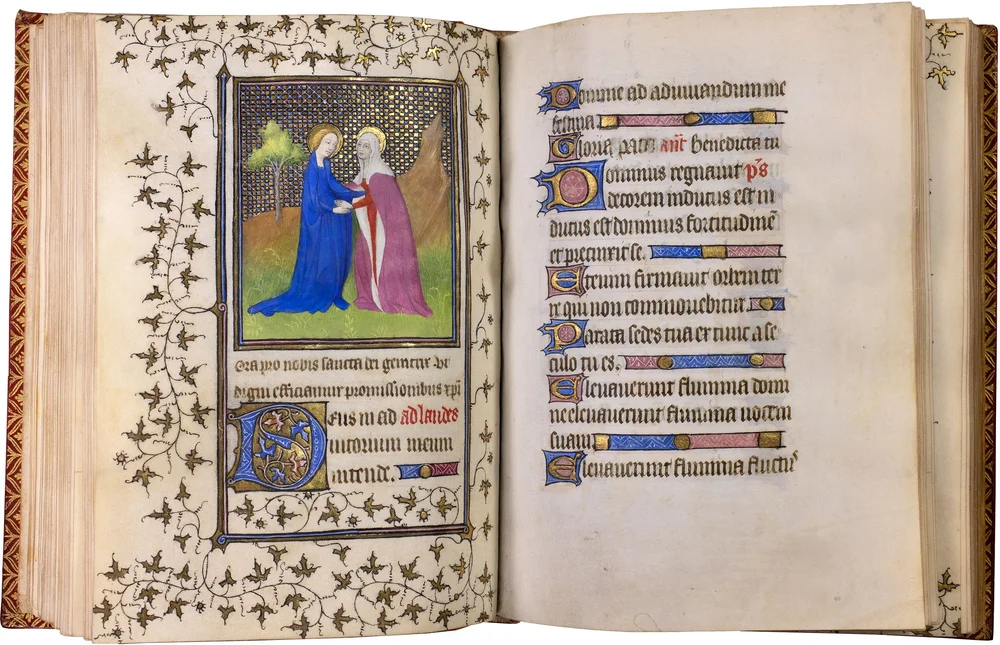 Ora pro nobis sancta dei genitrix Vt
digni efficiamur promissionibus xpi
Deus in ad ad laudes
iutorium meum
intende.
Domine ad adiuuandum me
festina
Gloria patri ant Benedicta tu
Dominus regnauit ps
decorem indutus est in
dutus est dominus fortitudinē
et precinxit se.
Etenim firmauit orbem ter
re qui non commouebitur.
Parata sedes tua ex tunc a se
culo tu es.
Eleuauerunt flumina domi
ne eleuauerunt flumina uocem
suam
Eleuauerunt flumina fluctus